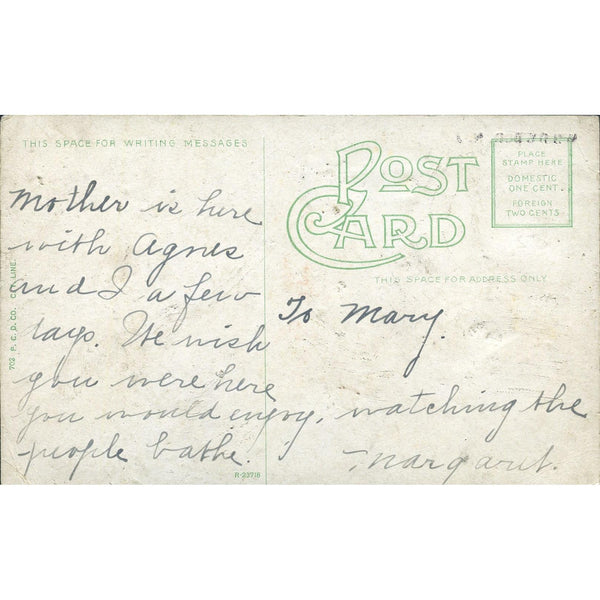 THIS SPACE FOR WRITING MESSAGES
POST CARD
PLACE
STAMP HERE
DOMESTIC
ONE CENT.
FOREIGN
TWO CENTS
THIS SPACE FOR ADDRESS ONLY.
Mother is here
with Agnes
and I a few
days. We wish
you were here
you would enjoy, watching the
people bathe.
To Mary.
Margaret.
R-23718